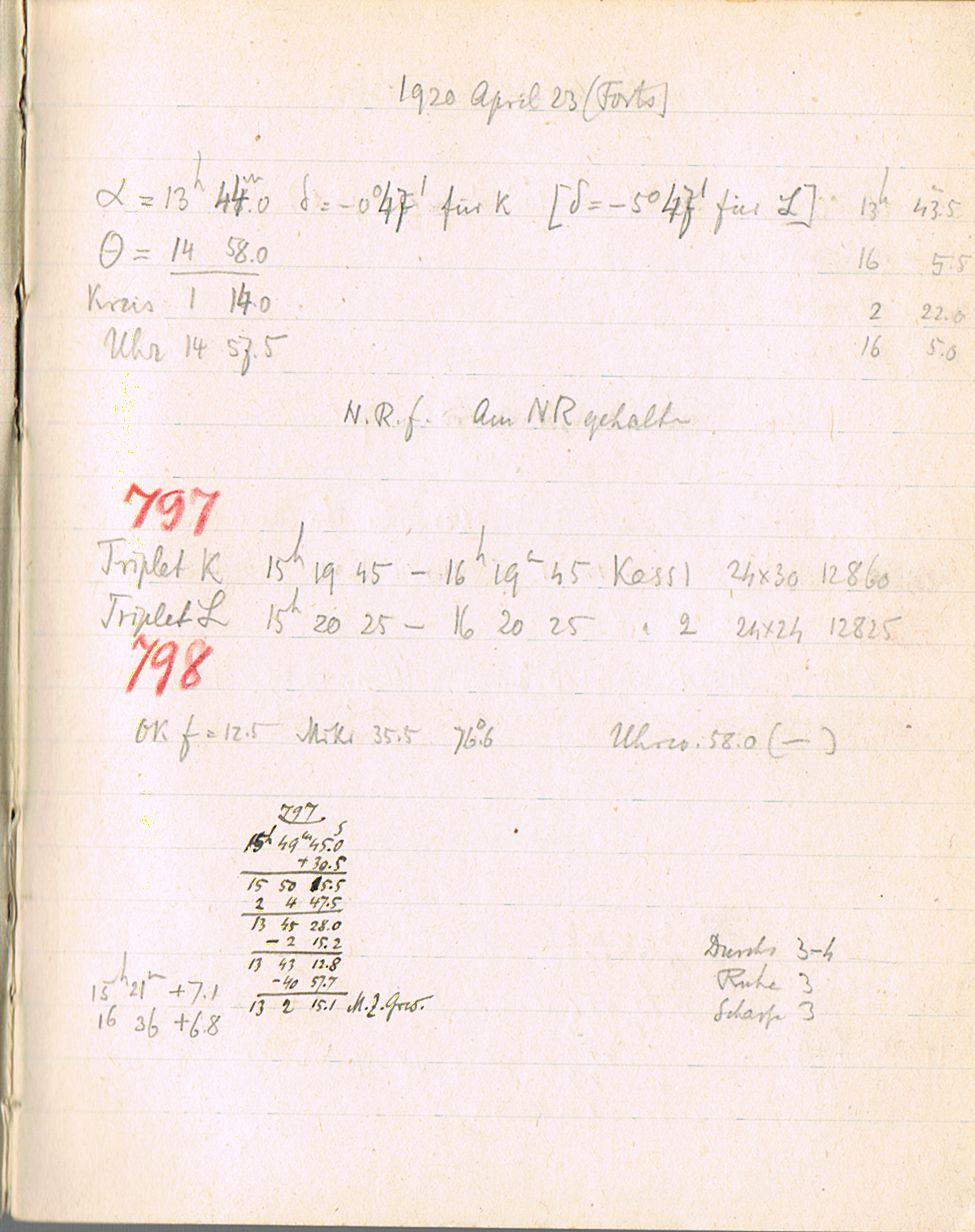 1920 April 23 (Forts)
α = 13ʰ 44ᵐ.0 δ = -0°47' für K [δ = -5°47' für L] 13ʰ 43.5
Θ = 14 58.0 16 5.5
Kreis 1 14.0 2 22.0
Uhr 14 57.5 16 5.0
N.R.f. Am NR gehalten
797
Triplet K 15ʰ 19 45 - 16ʰ 19ᵐ 45 Kass 1 24x30 12860
Triplet L 15ʰ 20 25 - 16 20 25 " 2 24x24 12825
798
OK f = 12.5 Mikr 35.5 76°.6 Uhrw. 58.0 (-)
797
15ʰ 49ᵐ 45.0ˢ
+30.5
15 50 15.5
2 4 47.5
13 45 28.0
- 2 15.2
13 43 12.8
-40 57.7
13 2 15.1 M.Z.Grw.
15ʰ 21ᵐ +7.1
16 36 +6.8
Durchs 3-4
Ruhe 3
Schärfe 3